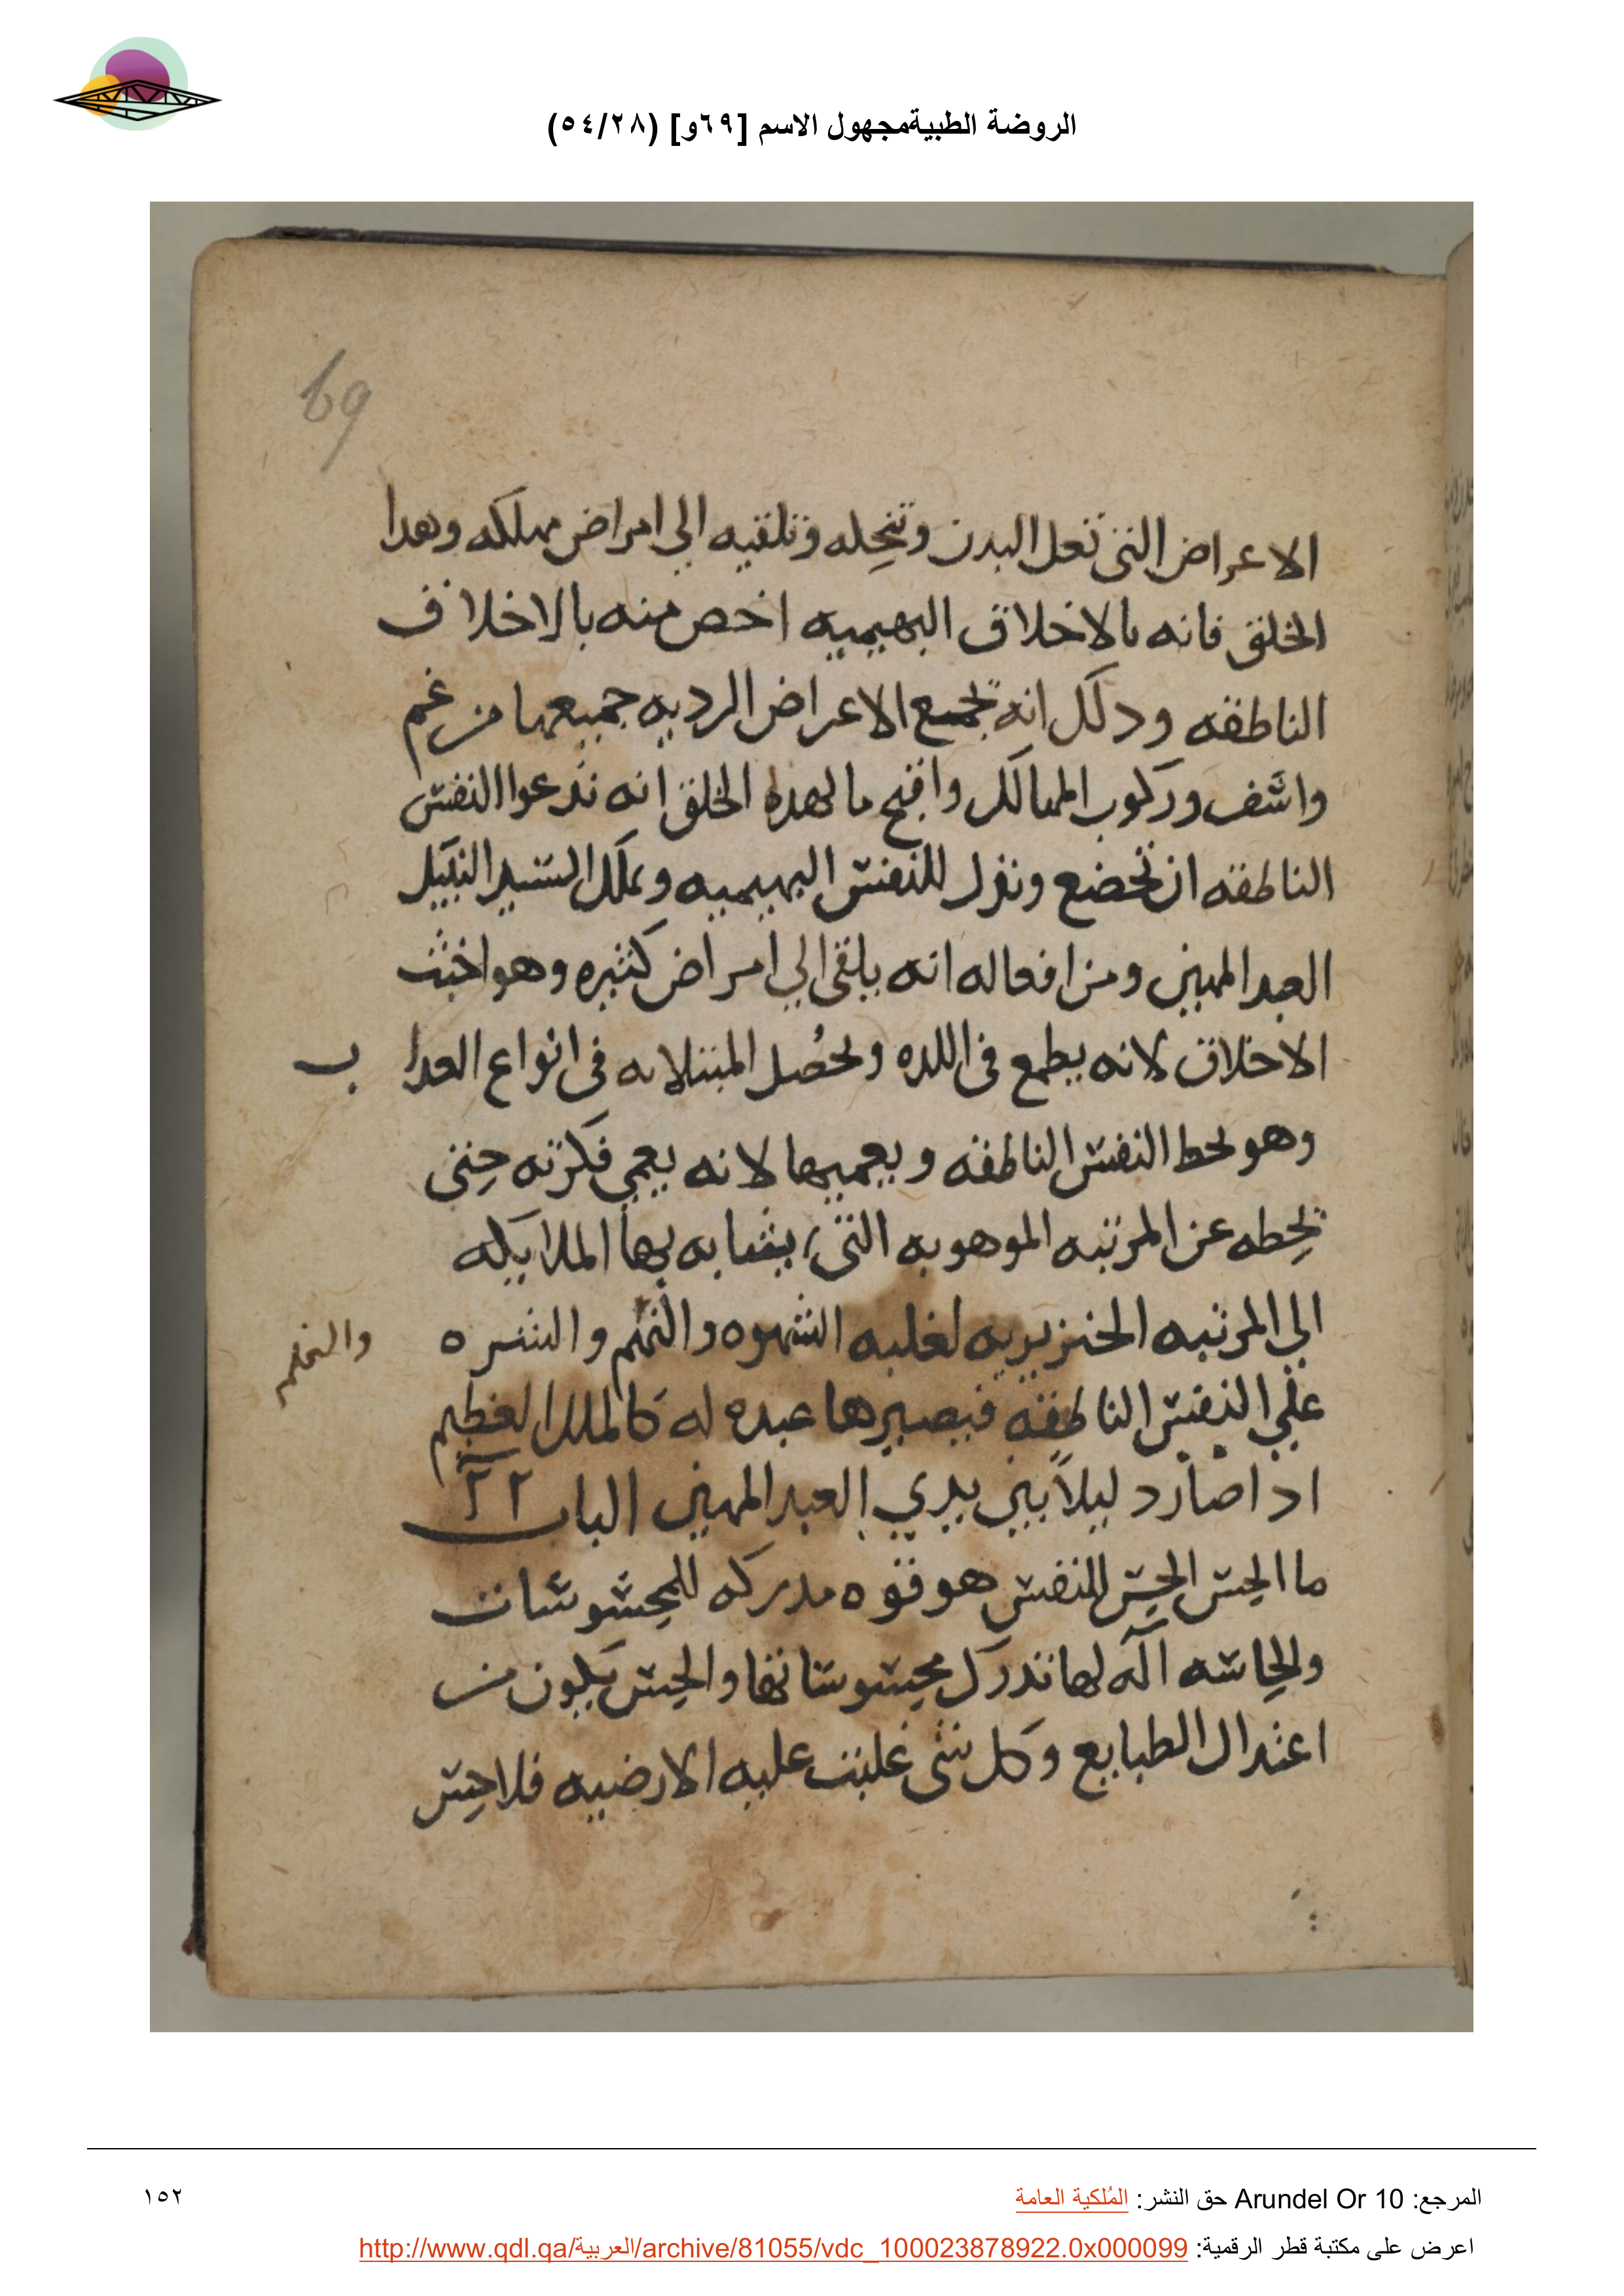 الروضة الطبيةمجهول الاسم [٦٩و] (٥٤/٢٨)
69
الاعراض التي تعل البدن وتنحله وتلقيه الي امراض مهلكه وهدا
الخلق فانه بالاخلاق البهيميه اخص منه بالاخلاق
الناطقه ودلك انه تجمع الاعراض الرديه جميعها من غم
واسف وركوب المهالك واقبح ما لهده الخلق انه تدعوا النفس
الناطقه ان تخضع وتذل للنفس البهيميه وتملك السيد النبيل
العبد المهين ومن افعاله انه يلقي الي امراض كثيره وهو اخبث
الاخلاق لانه يطمع في اللده ويحصل المبتلا به في انواع العداب
وهو يحط النفس الناطقه ويعميها لانه يعمي فكرته حتي
تحطه عن المرتبه الموهوبه التي يشابه بها الملايكه
الي المرتبه الخنزيريه لغلبه الشهوه والنهم والشره
علي النفس الناطقه فيصيرها عبده له كالملك العظيم
ادا صار دليلاً بين يدي العبد المهين الباب ٢٢
ما الحس الحس للنفس هو قوه مدركه للمحسوسات
والحاسه آله لها تدرك محسوساتها والحس يكون من
اعتدال الطبايع وكل شي غلبت عليه الارضيه فلا حس
المرجع: Arundel Or 10 حق النشر: المُلكية العامة
١٥٢
اعرض على مكتبة قطر الرقمية: http://www.qdl.qa/العربية/archive/81055/vdc_100023878922.0x000099